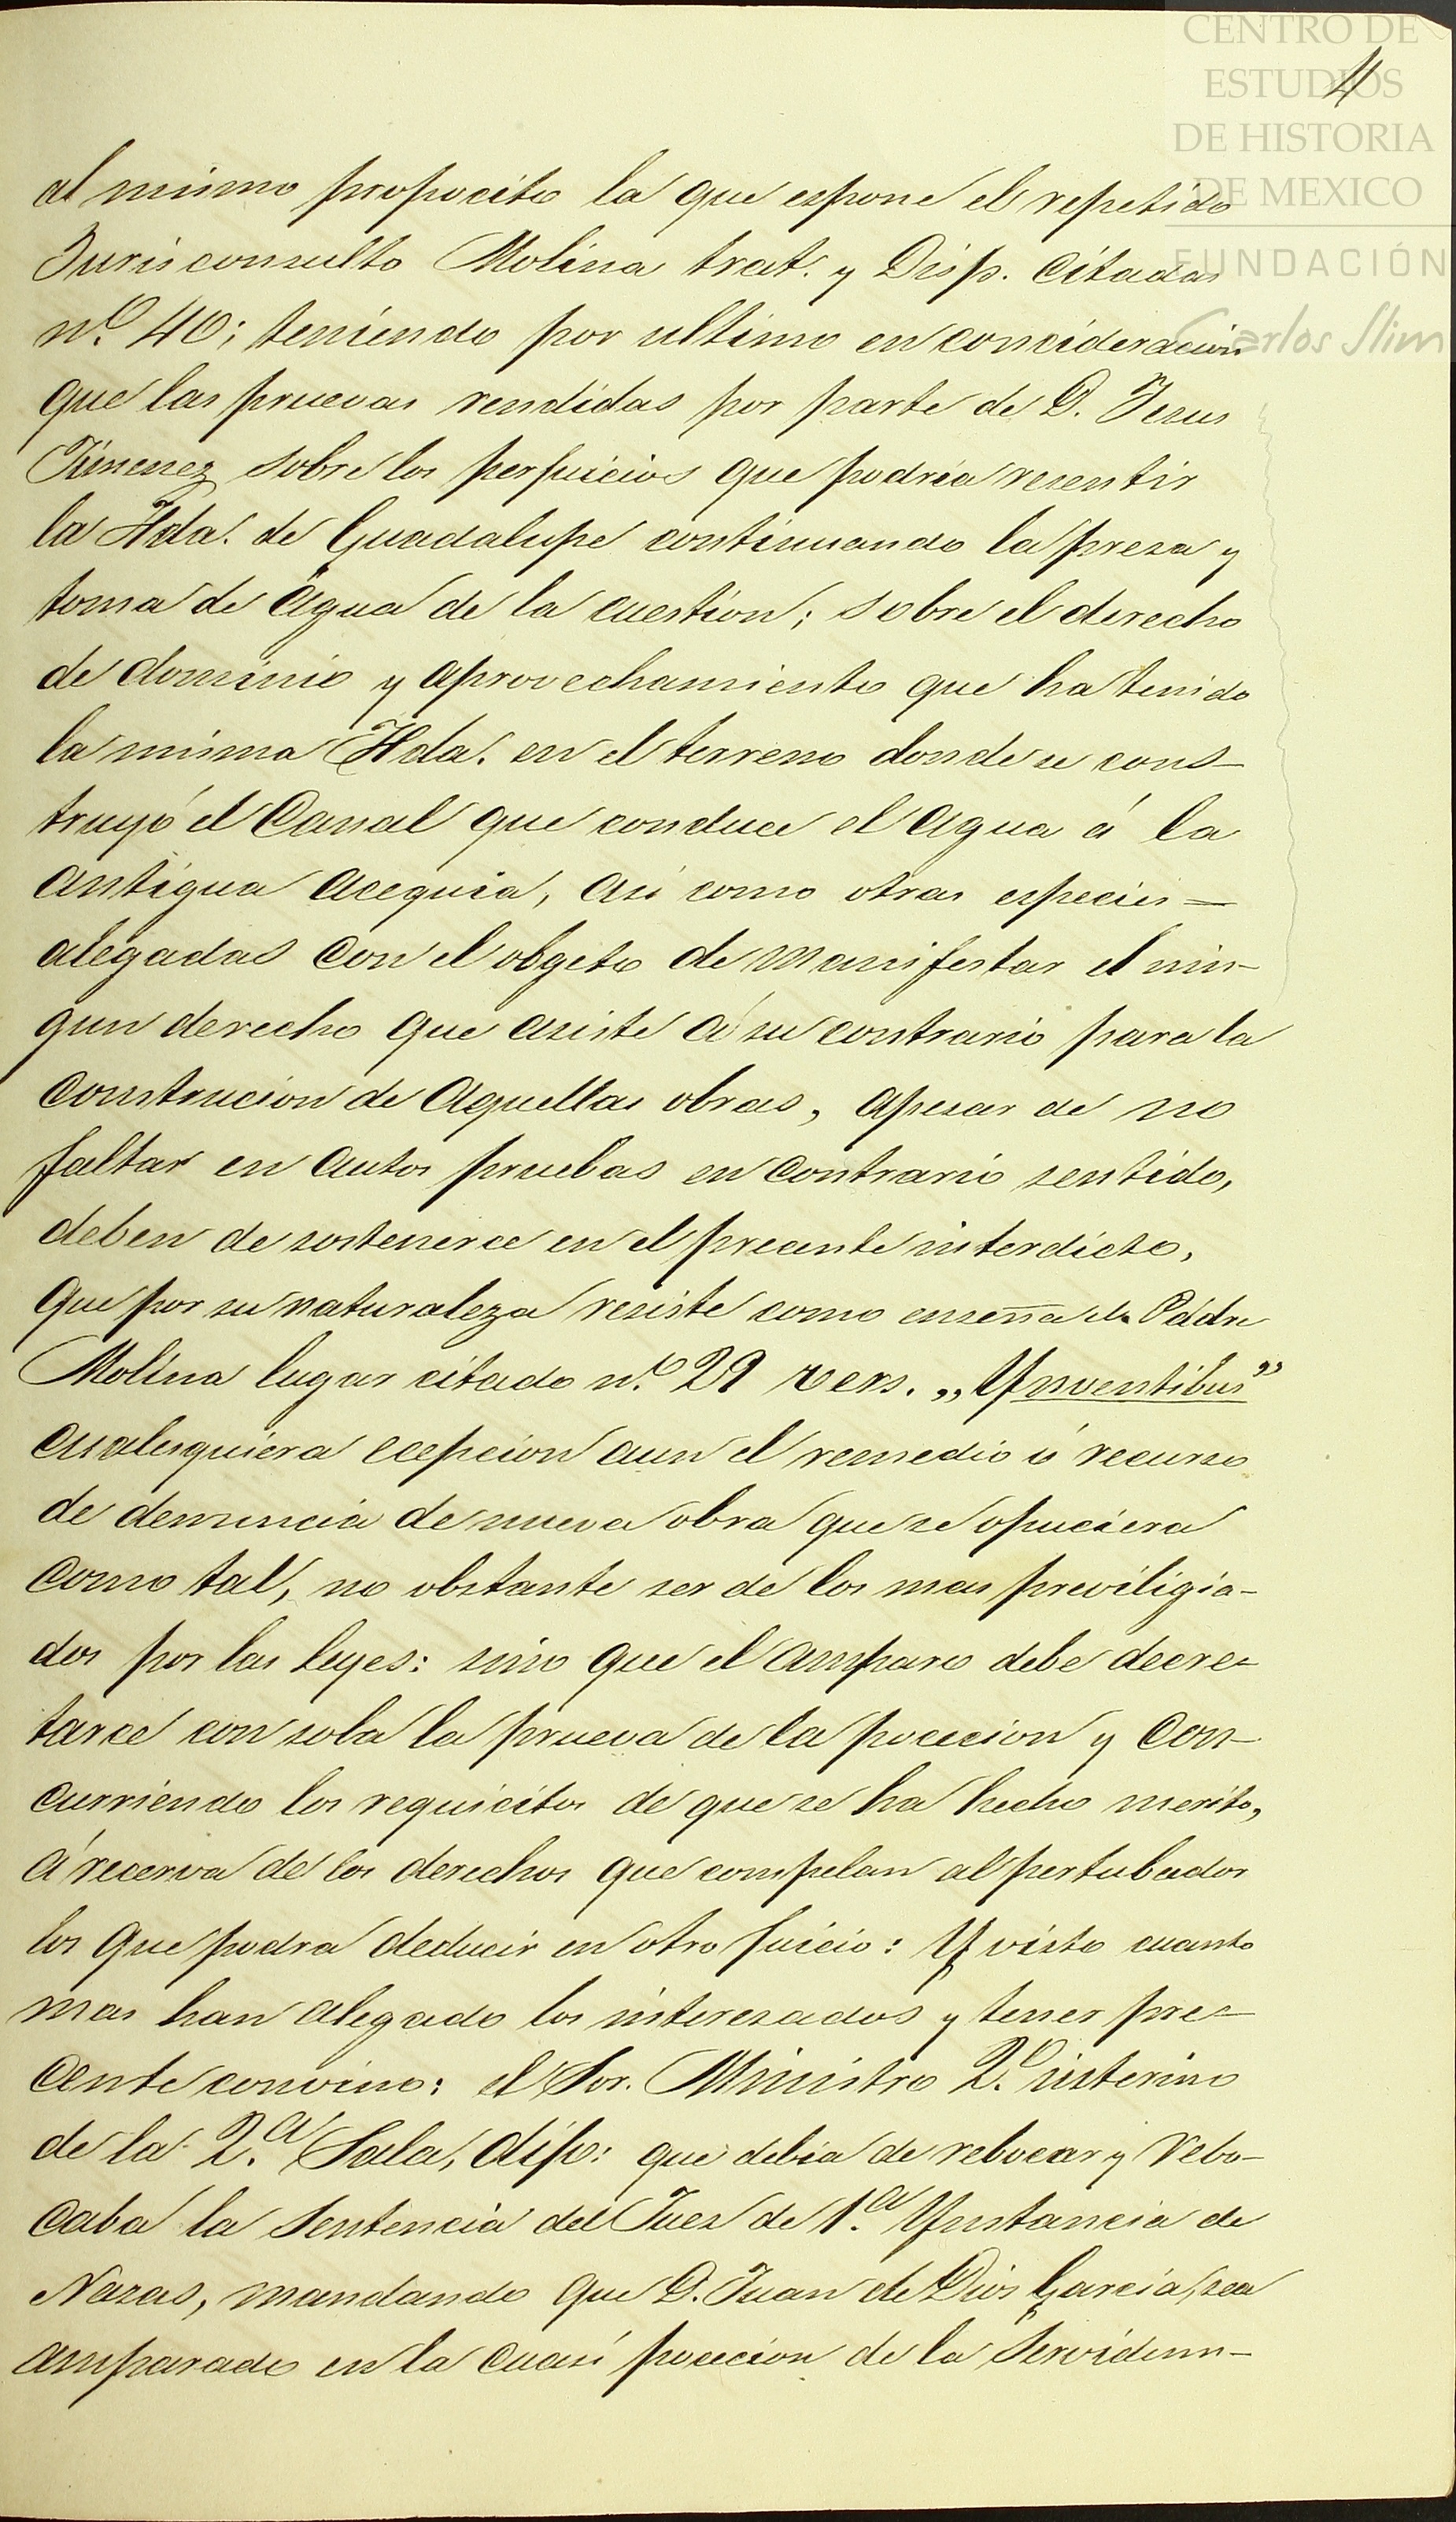 CENTRO DE
ESTUDIOS
DE HISTORIA
DE MEXICO
FUNDACIÓN
Carlos Slim
al mismo propocito la que espone el repetido
Jurisconsulto Molina trat. y Disp. Citadas
n.º 40; teniendo por ultimo en concideracion
que las pruevas rendidas por parte de D. Jesus
Jimenez sobre los perjuicios que podria resentir
la Hda. de Guadalupe continuando la presa y
toma de Agua de la cuestion; sobre el derecho
de dominio y aprovechamiento que ha tenido
la misma Hda. en el terreno donde se cons-
truyó el Canal que conduce el Agua á la
antigua Acequia, asi como otras especies =
alegadas con el obgeto de manifestar el nin-
gun derecho que asiste á su contrario para la
construcion de Aquellas obras, apesar de no
faltar en autos pruebas en contrario sentido,
deben de sostenerce en el precente interdicto,
que por su naturaleza resiste como enseña el Padre
Molina lugar citado n.º 29 vers. „Ynventibus”
cualesquiera ecepcion aun el remedio ó recurso
de denuncia de nueva obra que se opuciera
como tal, no obstante ser de los mas previligia-
dos por las leyes: sino que el amparo debe decre-
tarce con sola la prueva de la pocecion y con-
curriendo los requicitos de que se ha hecho merito,
á recerva de los derechos que compelan al pertubador
los que podra deducir en otro juicio: Y visto cuanto
mas han alegado los interesados y tener pre-
cente convino: el Sor. Ministro 2.º interino
de la 2.ª Sala, dijo: que debia de rebocar y rebo-
caba la Sentencia del Juez de 1.ª Ynstancia de
Nazas, mandando que D. Juan de Dios Garcia, sea
amparado en la cuasi pocecion de la Servidum-